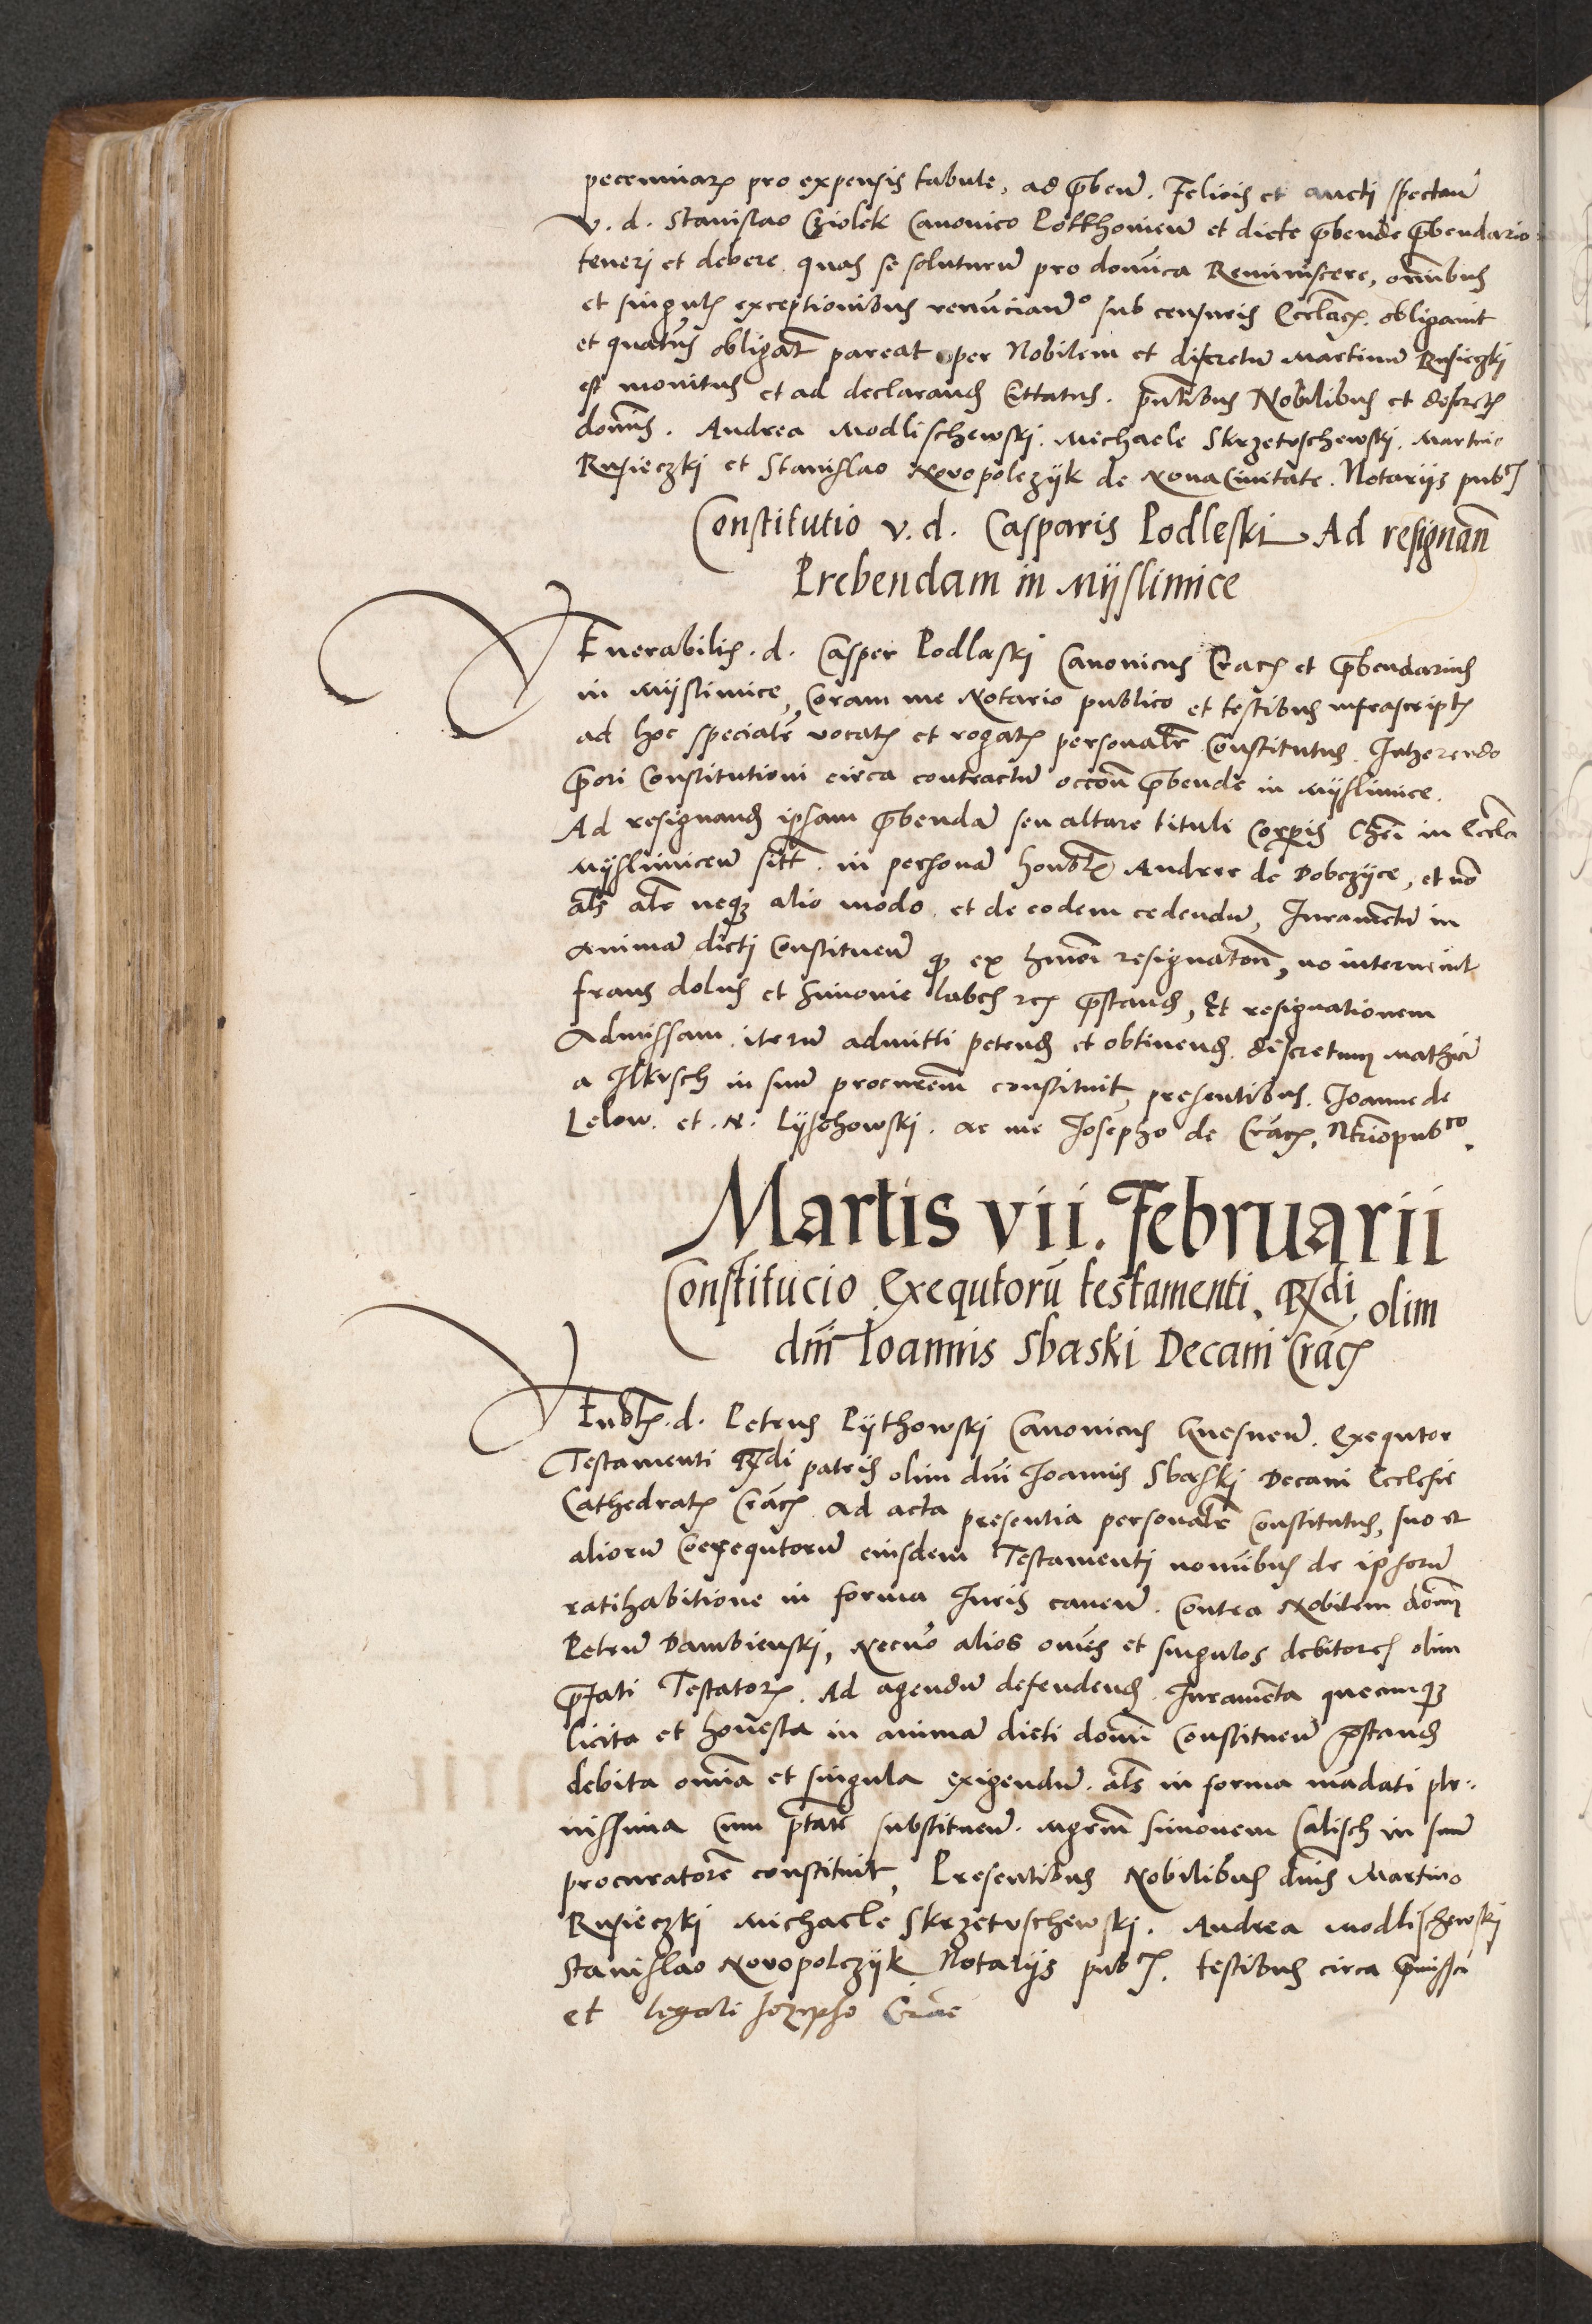 pecuniarẜ pro expensis tabule, ad p̄bend̄. Felicis et Aucti spectan̄
V. d. Stanislao Cziolek Canonico Lofkhoniens̄ et dicte p̄bende p̄bendario
teneri et debere quas se soluturū pro domīca Reminiscere, omībus
et singulẜ exceptionibus renūciando sub censuris Eccl̄acẜ. obligauit
et quatūs obligat̄ pareat per Nobilem et discretū Martinū Rusieczki
est monitus et ad declarandẜ Cittatus. p̄ntibus Nobilibus et discretẜ
dominẜ. Andrea Modlischewski. Michaele Skrzetuschewski. Martino
Rusieczki et Stanislao Novopolczijk de Nova Ciuitate. Notarijs pubẜ
Constitutio v. d. Casparis Podleski Ad resignan̄
Prebendam in Mijslimice
VEnerabilis. d. Casper Podlaski Canonicus Cracẜ et p̄bendarius
in Mijslimice, Coram me Notario publico et testibus infrascriptẜ
ad hoc specialr̄ vocatẜ et rogatẜ personalr̄ Constitutus. Inherendo
p̄ori Constitutioni circa contractū occōn̄ p̄bende in Mijslimice.
Ad resignandẜ ipsam p̄bendā seu altare tituli Corp̄is Chr̄i in Eccl̄a
Mijslimicen̄ sitt̄. in personā honbl̄ẜ Andree de Dobczijce, et nō
als̄ alr̄ neqꝫ alio modo. et de eodem cedendū, Iuramentū in
animā dicti Constituen̄ ꝙ ex hm̄ōi resignatōn̄, nō interuenit
fraus dolus et Simonie labes rcẜ p̄standẜ, Et resignationem
Admissam iterū admitti petendẜ et obtinendẜ. discretum Mathiā
a Ilkusch in suū procurem̄ constituit, presentibus. Ioanne de
Lelow. et. N. Lijschowski. ac me Iosepho de Cracẜ. Ntr̄io pubco.
Martis vii. Februarii
Constitucio Exequtorū testamenti. Rdi olim
dn̄i Ioannis Sbaski Decani Cracẜ
VEnbl̄ẜ. d. Petrus Pijthowski Canonicus Gnesnen̄. Exequtor
Testamenti Rdi patris olim dn̄i Ioannis Sbaski Decani Ecclesie
Cathedralẜ Cracẜ. ad acta presentia personalr̄ Constitutus, suo et
aliorū Coexequtorū eiusdem Testamenti nomībus de ipsorū
ratihabitione in forma Iuris cauen̄. Contra Nobilem domī
Petrū Dambienski, Necnō alios omēs et singulos debitores olim
p̄fati Testatorẜ. Ad agendū defendendẜ. Iuramenta quecunqꝫ
licita et honesta in animā dicti domī Constituen̄ p̄standẜ
debita omīa et singula exigendū. als̄ in forma mādati ple-
nissima Cum p̄tate substituen̄. Mgrm̄ Simonem Calisch in suū
procuratorē constituit, Presentibus Nobilibus dnīs Martino
Rusieczki Michaele Skrzetuschewski. Andrea Modlischewski
Stanislao Novopolczijk Notarijs pubẜ. testibus circa p̄missa
et legali Jozepho Crac